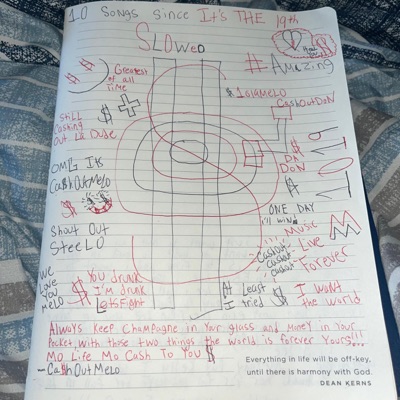 10 Songs Since It's THE 19th
SLOWeD
# Amazing
Greatest
of all
Time
$ 1olaMeLO
CashOutDoN
Still
Cashing
Out La Dude
$
DA
DoN
OMG Its
CashOutMeLo
$
Shout Out
SteeLO
ONE DAY
i'll win
Music
Love
Forever
CashOut
CashOut
CashOut
We
Love
You
MeLO
$ You drunk
I'm drunk
Lets Fight
At Least
I tried
$ I want
the World
Always Keep Champagne in Your glass and money in Your
Pocket, with those two things the world is forever Yours!!!
Mo Life Mo Cash To You $
- CashOutMelo
Everything in life will be off-key,
until there is harmony with God.
DEAN KERNS